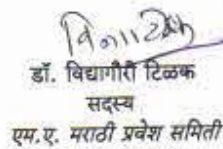 डॉ. विद्यागौरी टिळक
सदस्य
एम.ए. मराठी प्रवेश समिती